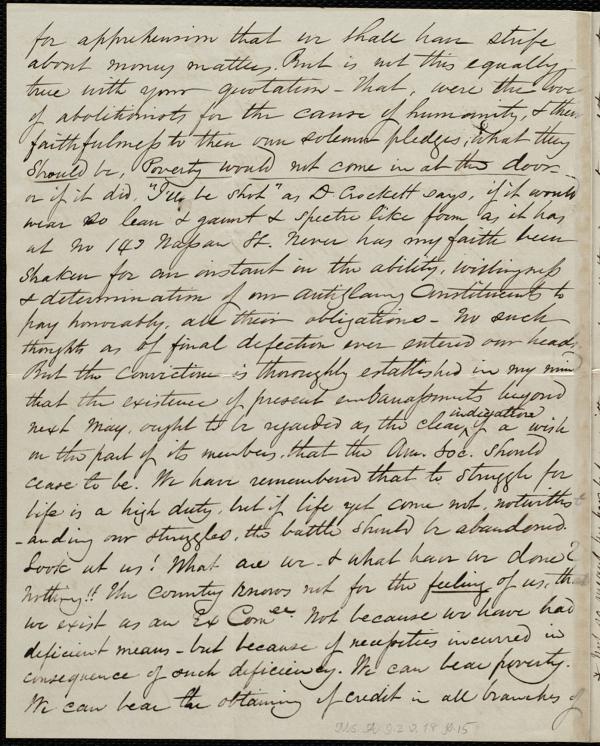 for apprehension that we shall have strife
about money matters. But is not this equally
true with your quotation - That, were the love
of abolitionists for the cause of humanity, & their
faithfulness to their own solemn pledges, what they
should be, Poverty would not come in at the door -
or if it did, "I'll be shot" as D. Crockett says, if it would
wear so lean & gaunt & spectre like form as it has
at No 143 Nassau St. Never has my faith been
shaken for an instant in the ability, willingness
& determination of our antislavery Constituents to
pay honorably, all their obligations - No such
thoughts as of final defection ever entered our heads
But the conviction is thoroughly established in my mind
that the existence of present embarrassments beyond
next May, ought to be regarded as the clear indication of a wish
on the part of its members, that the Am. Soc. should
cease to be. We have remembered that to struggle for
life is a high duty, but if life yet come not, notwithst
-anding our struggles, the battle should be abandoned.
Look at us! What are we - & what have we done?
Nothing!! The country knows not for the feeling of us, that
we exist as an Ex Comee. Not because we have had
deficient means - but because of necessities incurred in
consequence of such deficiency. We can bear poverty.
We can bear the obtaining of credit in all branches of